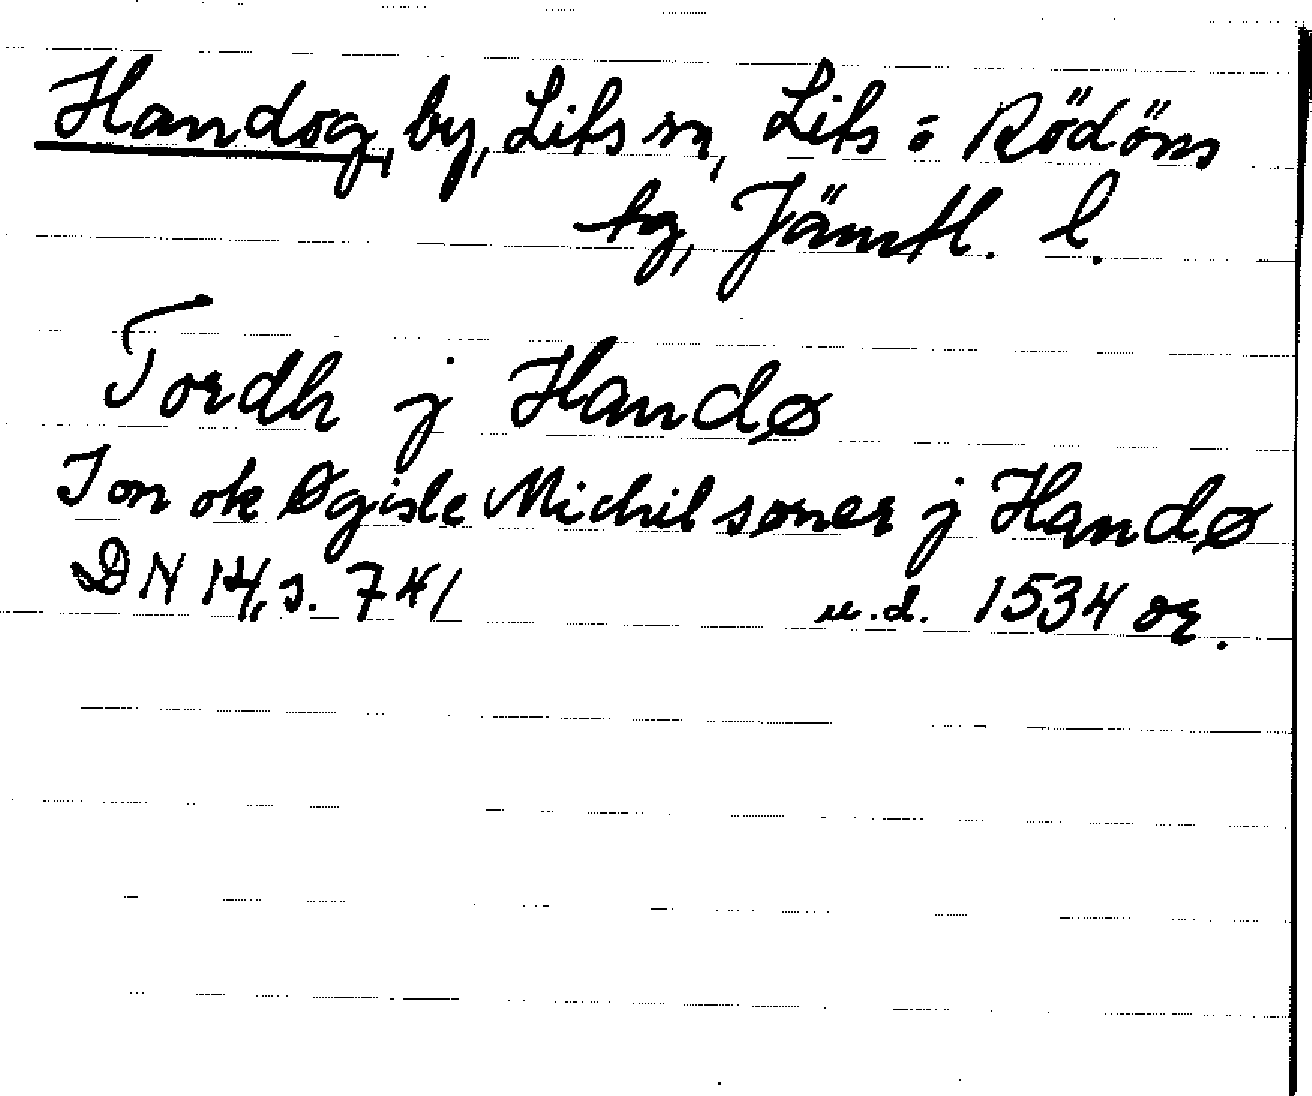 Handog, by, Lits sn, Lits o Rödöns
tg, Jämtl. l.
Tordh j Handø
Jon ok Øgisle Michilsøner j Handø
DN 14, s. 741 u.d. 1534 or.